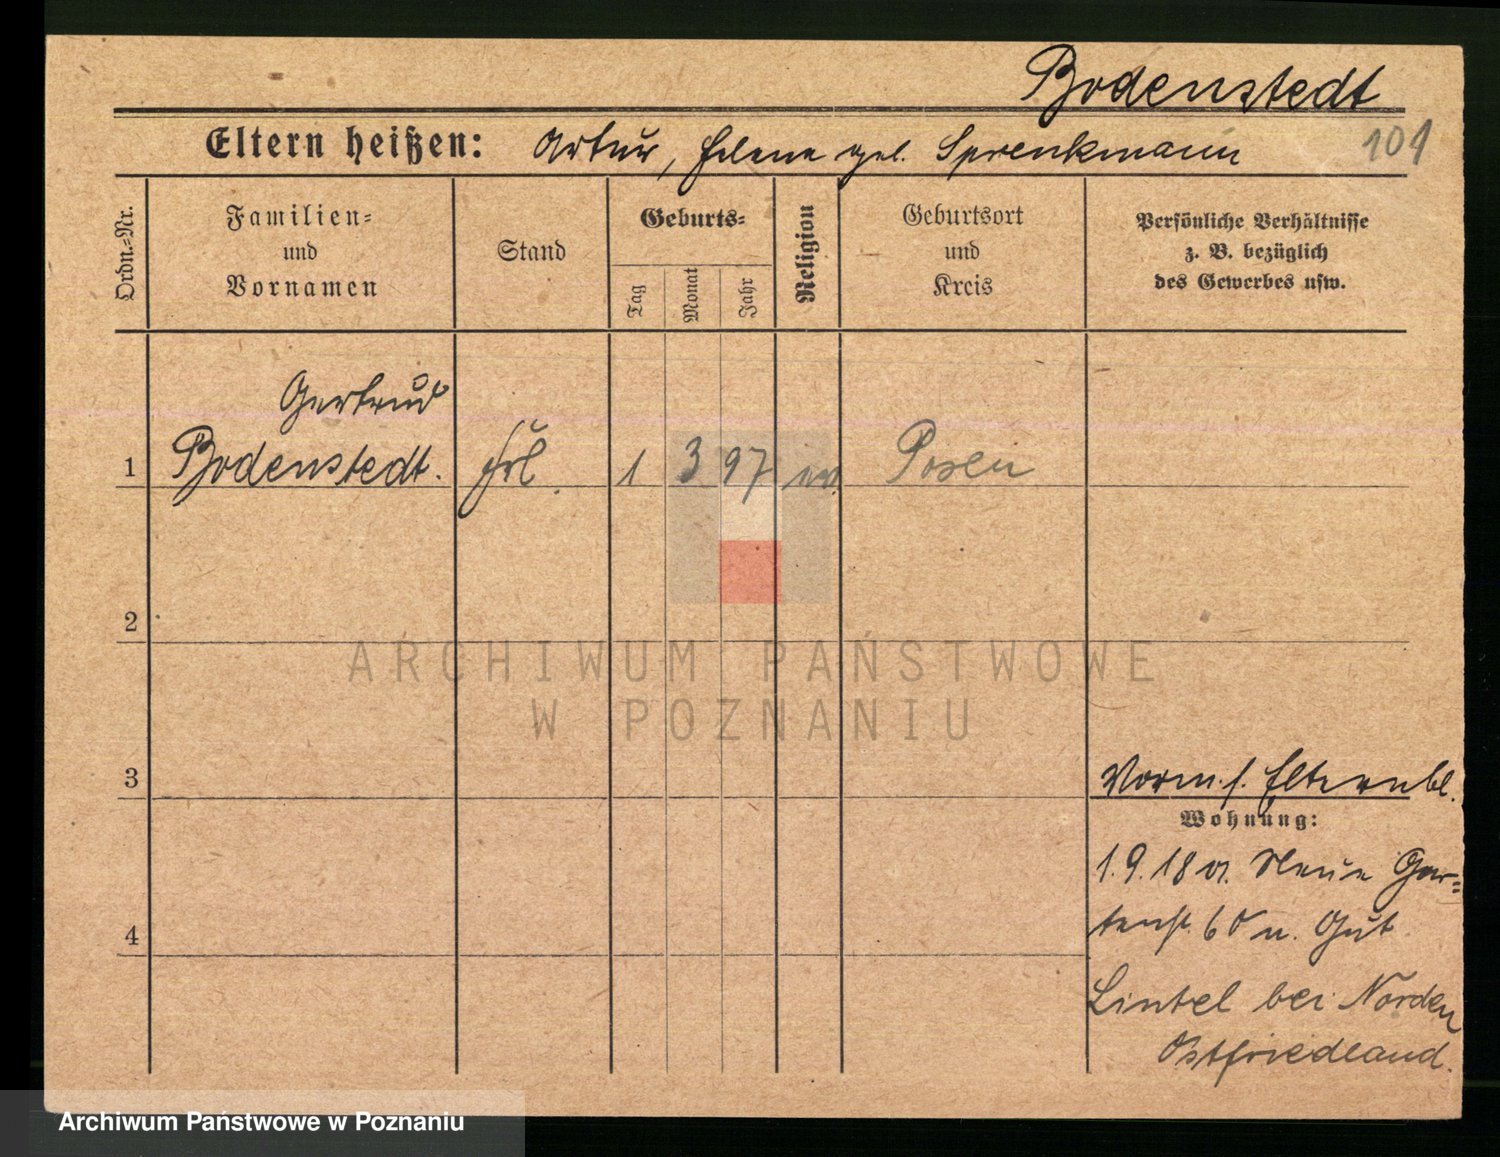 Bodenstedt
Eltern heißen: Artur, Helene geb. Sprenkmann
101
Ordn.=Nr.
Familien=
und
Vornamen
Stand
Geburts=
Tag
Monat
Jahr
Religion
Geburtsort
und
Kreis
Persönliche Verhältnisse
z. B. bezüglich
des Gewerbes usw.
Gertrud
1 Bodenstedt. Frl. 1 3 97 ev. Posen
2
3
Vorm. s. Elternbl.
Wohnung:
1.9.18 v. Neue Gar=
tenst. 60 n. Gut
4
Lintel bei Norden
Ostfriedland.
ARCHIWUM PAŃSTWOWE
W POZNANIU
Archiwum Państwowe w Poznaniu